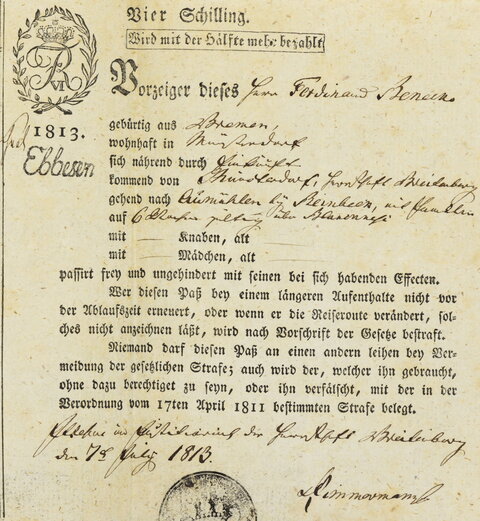 Vier Schilling.
Wird mit der Hälfte mehr bezahlt
FR
VI
1813.
Ebbesen
Vorzeiger dieses Herr Ferdinand Beneke
gebürtig aus Bremen,
wohnhaft in Münsterdorf
sich nährend durch
kommend von Münsterdorf, Herrschaft Breitenburg
gehend nach bey Reinbeck, mit Familie
auf 6 Wochen gültig über Blankenese
mit — Knaben, alt
mit — Mädchen, alt
passirt frey und ungehindert mit seinen bei sich habenden Effecten.
Wer diesen Paß bey einem längeren Aufenthalte nicht vor
der Ablaufszeit erneuert, oder wenn er die Reiseroute verändert, sol-
ches nicht anzeichnen läßt, wird nach Vorschrift der Gesetze bestraft.
Niemand darf diesen Paß an einen andern leihen bey Ver-
meidung der gesetzlichen Strafe; auch wird der, welcher ihn gebraucht,
ohne dazu berechtiget zu seyn, oder ihn verfälscht, mit der in der
Verordnung vom 17ten April 1811 bestimmten Strafe belegt.
Itzehoe im Justitiariat der Herrschaft Breitenburg
den 7 July 1813.
Zimmermann